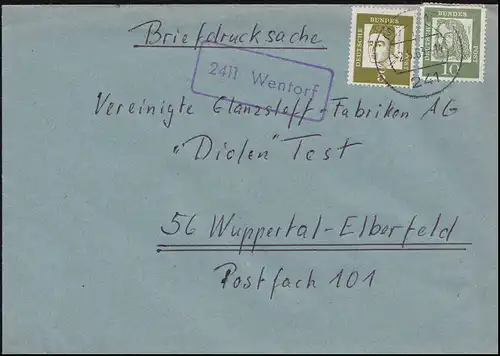 Briefdrucksache
DEUTSCHE BUNDESPOST
5
DEUTSCHE BUNDESPOST
10
241
2411 Wentorf
Vereinigte Glanzstoff-Fabriken AG
"Diolen" Test
56 Wuppertal-Elberfeld
Postfach 101